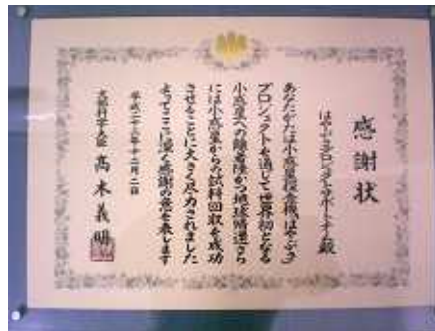 感謝状
はやぶさプロジェクトサポートチーム殿
あなたがたは小惑星探査機はやぶさ
プロジェクトを通じて世界初となる
小惑星への離着陸かつ地球帰還さら
には小惑星からの試料回収を成功
させることに大きく尽力されました
よってここに深く感謝の意を表します
平成二十二年十二月二日
文部科学大臣 髙木義明